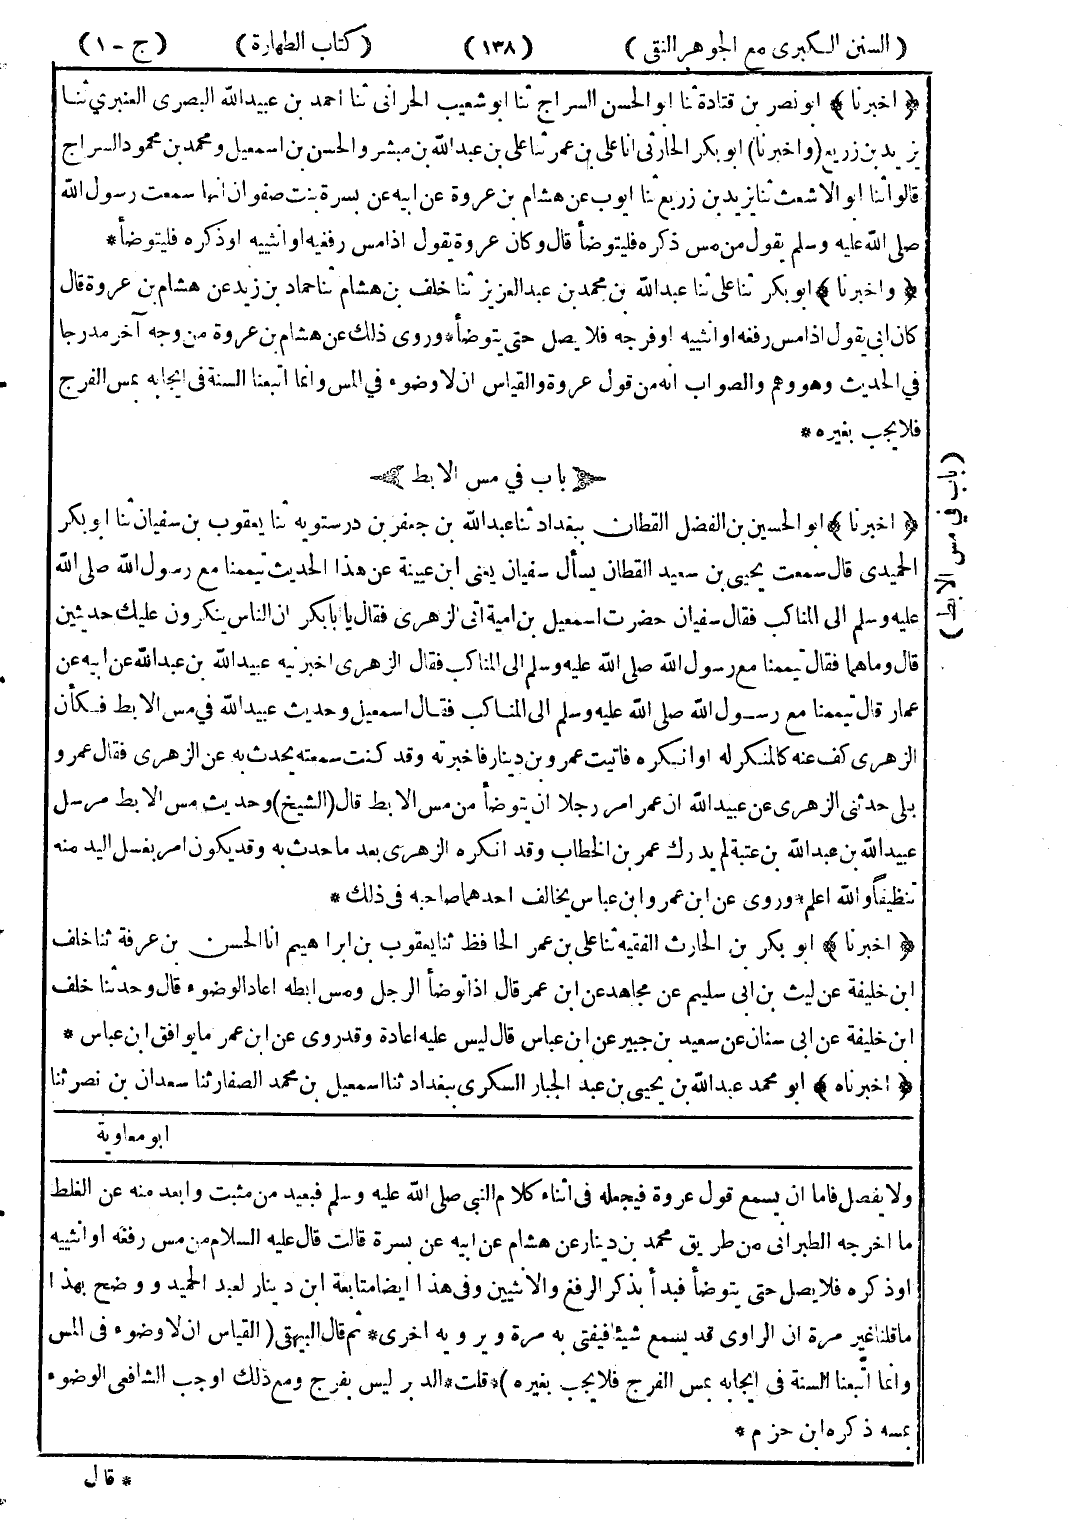 (السنن الكبرى مع الجوهر النقى) (١٣٨) (كتاب الطهارة) (ج - ١)
﴿ اخبرنا ﴾ ابو نصر بن قتادة ثنا ابو الحسن السراج ثنا ابو شعيب الحرانى ثنا احمد بن عبيد الله البصرى العنبري ثنا
يزيد بن زريع (واخبرنا) ابو بكر الحارثى انا على بن عمر ثنا على بن عبد الله بن مبشر والحسن بن اسمعيل ومحمد بن محمود السراج
قالوا ثنا ابو الاشعث ثنا يزيد بن زريع ثنا ايوب عن هشام بن عروة عن ابيه عن بسرة بنت صفوان انها سمعت رسول الله
صلى الله عليه وسلم يقول من مس ذكره فليتوضأ قال وكان عروة يقول اذا مس رفغيه او انثييه او ذكره فليتوضأ *
﴿ واخبرنا ﴾ ابو بكر ثنا على ثنا عبد الله بن محمد بن عبد العزيز ثنا خلف بن هشام ثنا حماد بن زيد عن هشام بن عروة قال
كان ابى يقول اذا مس رفغه او انثييه او فرجه فلا يصل حتى يتوضأ * وروى ذلك عن هشام بن عروة من وجه آخر مدرجا
في الحديث وهو وهم والصواب انه من قول عروة والقياس ان لا وضوء في المس وانما اتبعنا السنة فى ايجابه بمس الفرج
فلا يجب بغيره *
باب في مس الابط
(باب في مس الابط)
﴿ اخبرنا ﴾ ابو الحسين بن الفضل القطان ببغداد ثنا عبد الله بن جعفر بن درستويه ثنا يعقوب بن سفيان ثنا ابو بكر
الحميدى قال سمعت يحيى بن سعيد القطان يسأل سفيان يعنى ابن عيينة عن هذا الحديث تيممنا مع رسول الله صلى الله
عليه وسلم الى المناكب فقال سفيان حضرت اسمعيل بن امية اتى الزهرى فقال يا بابكر ان الناس ينكرون عليك حديثين
قال وما هما فقال تيممنا مع رسول الله صلى الله عليه وسلم الى المناكب فقال الزهرى اخبرنيه عبيد الله بن عبد الله عن ابيه عن
عمار قال تيممنا مع رسول الله صلى الله عليه وسلم الى المناكب فقال اسمعيل وحديث عبيد الله في مس الابط فكأن
الزهرى كف عنه كالمنكر له او انكره فاتيت عمرو بن دينار فاخبرته وقد كنت سمعته يحدث به عن الزهرى فقال عمرو
بلى حدثنى الزهرى عن عبيد الله ان عمر امر رجلا ان يتوضأ من مس الابط قال (الشيخ) وحديث مس الابط مرسل
عبيد الله بن عبد الله بن عتبة لم يدرك عمر بن الخطاب وقد انكره الزهرى بعد ما حدث به وقد يكون امر بغسل اليد منه
تنظيفاً والله اعلم * وروى عن ابن عمر وابن عباس يخالف احدهما صاحبه فى ذلك *
﴿ اخبرنا ﴾ ابو بكر بن الحارث الفقيه ثنا على بن عمر الحافظ ثنا يعقوب بن ابراهيم انا الحسن بن عرفة ثنا خلف
ابن خليفة عن ليث بن ابى سليم عن مجاهد عن ابن عمر قال اذا توضأ الرجل ومس ابطه اعاد الوضوء قال وحدثنا خلف
ابن خليفة عن ابى سنان عن سعيد بن جبير عن ابن عباس قال ليس عليه اعادة وقد روى عن ابن عمر ما يوافق ابن عباس *
﴿ اخبرناه ﴾ ابو محمد عبد الله بن يحيى بن عبد الجبار السكرى ببغداد ثنا اسمعيل بن محمد الصفار ثنا سعدان بن نصر ثنا
ابو معاوية
ولا يفصل فاما ان يسمع قول عروة فيجعله فى اثناء كلام النبي صلى الله عليه وسلم فبعيد من مثبت وابعد منه عن الغلط
ما اخرجه الطبرانى من طريق محمد بن دينار عن هشام عن ابيه عن بسرة قالت قال عليه السلام من مس رفغه او انثييه
او ذكره فلا يصل حتى يتوضأ فبدأ بذكر الرفغ والانثيين وفى هذا ايضا متابعة ابن دينار لعبد الحميد ووضح بهذا
ما قلنا غير مرة ان الراوى قد يسمع شيئا فيفتى به مرة ويرويه اخرى * ثم قال البيهقى (القياس ان لا وضوء فى المس
وانما اتبعنا السنة فى ايجابه بمس الفرج فلا يجب بغيره) * قلت * الدبر ليس بفرج ومع ذلك اوجب الشافعى الوضوء
بمسه ذكره ابن حزم *
* قال